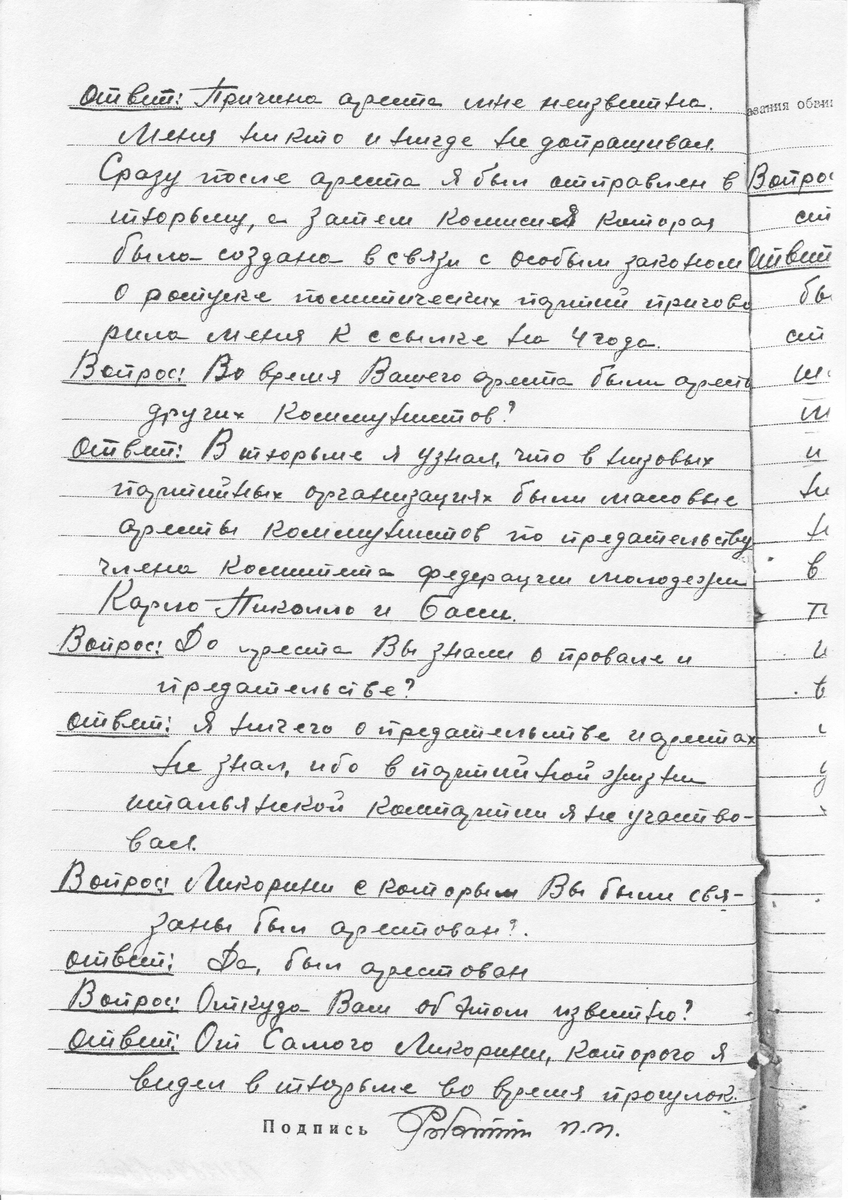 Ответ: Причина ареста мне неизвестна.
Меня никто и нигде не допрашивал.
Сразу после ареста я был отправлен в
тюрьму, а затем комиссией которая
была создана в связи с особым законом
о роспуске политических партий пригово
рила меня к ссылке на 4 года.
Вопрос: Во время Вашего ареста были аресты
других коммунистов?
Ответ: В тюрьме я узнал, что в низовых
партийных организациях были массовые
аресты коммунистов по предательству
члена комитета федерации молодежи
Карло Пиколло и Басси.
Вопрос: До ареста Вы знали о провале и
предательстве?
Ответ: Я ничего о предательстве и арестах
не знал, ибо в партийной жизни
итальянской компартии я не участво-
вал.
Вопрос: Ликорини с которым Вы были свя-
заны был арестован?.
Ответ: Да, был арестован
Вопрос: Откуда Вам об этом известно?
Ответ: От Самого Ликорини, которого я
видел в тюрьме во время прогулок.
Подпись Роботти П.П.
азания обви
Вопрос
ст
Ответ
бы
ст
ш
и
не
н
в
п
и
в